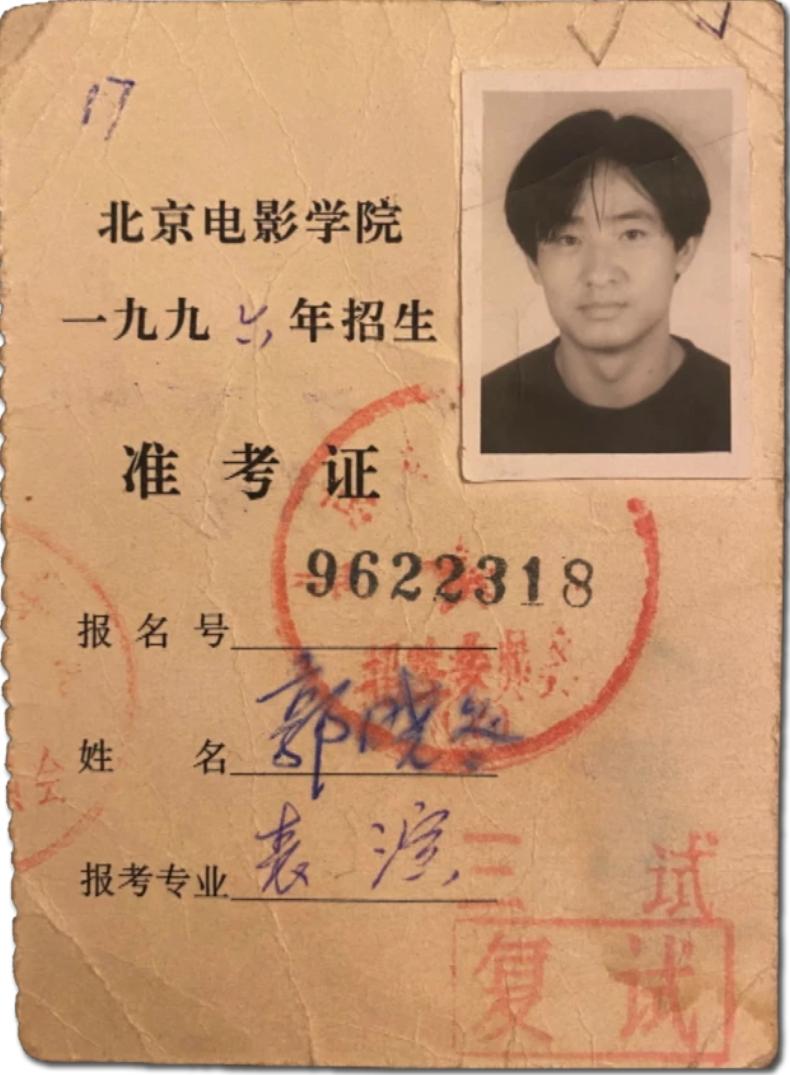 17
北京电影学院
一九九六年招生
准考证
9622318
报名号
姓名 郭晓
报考专业 表演
三试
复试